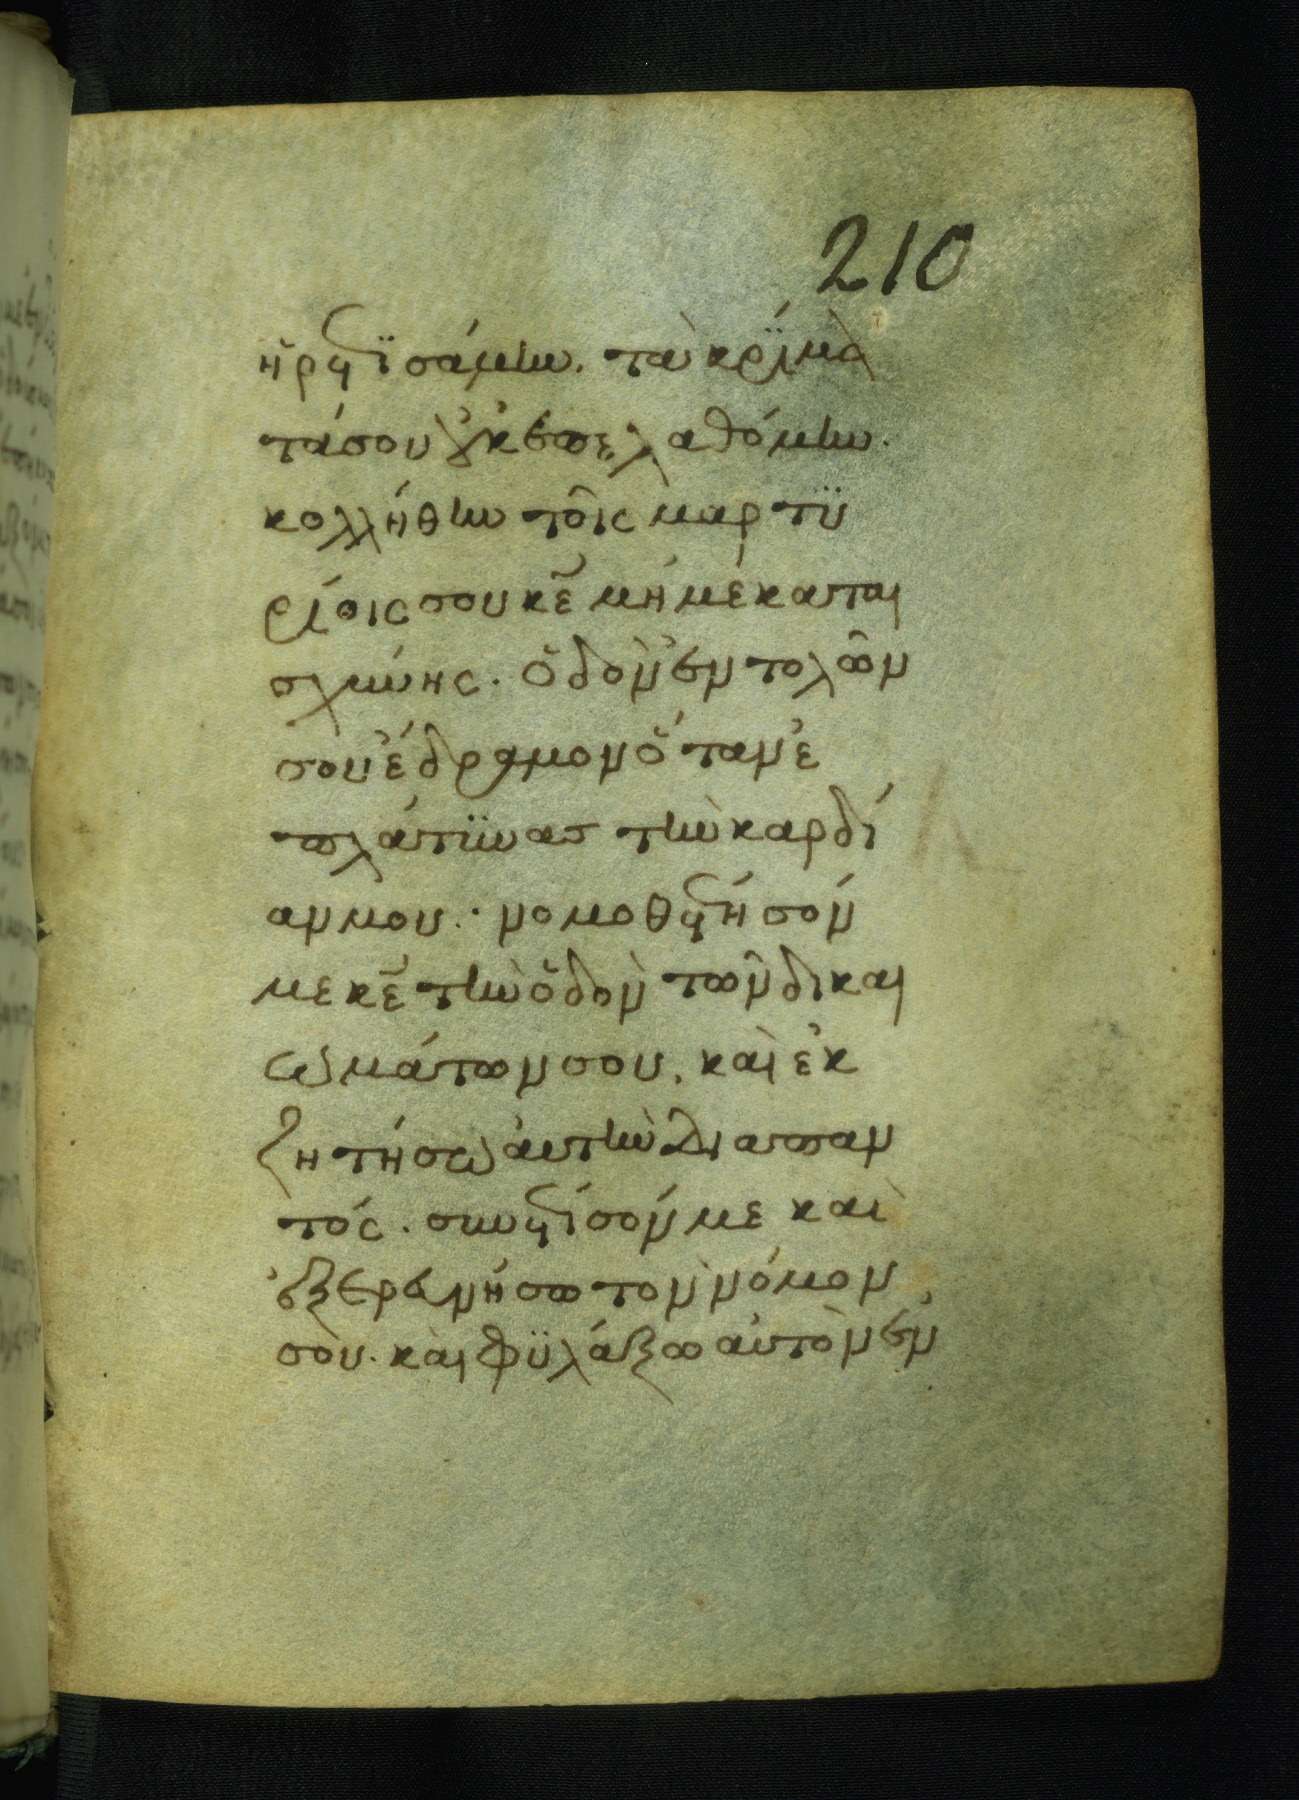 210
ἠρετϊσάμην. τὰ κρΐμα
τά σου οὐκ ἐπελαθόμην.
κολλήθην τοῖς μαρτϋ
ρίοις σου κε μή με καται
σχύνης. ὁδὸν ἐντολῶν
σου ἔδραμον ὅταν ἐ
πλάτϋνας τὴν καρδί
αν μου. νομοθετήσόν
με κε τὴν ὁδὸν τῶν δικαι
ωμάτων σου, καὶ ἐκ
ζητήσω αὐτὴν διαπαν
τός. συνετισόν με καὶ
ἐξερευνήσω τὸν νόμον
σου. καὶ φϋλάξω αὐτὸν ἐν